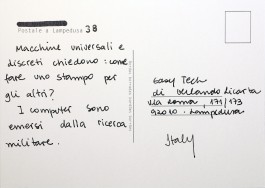 Postale a Lampedusa 38
Macchine universali e
discreti chiedono: come
fare uno stampo per
gli altri?
I computer sono
emersi dalla ricerca
militare.
Easy Tech
di Orlando Licarta
via Roma, 171/173
92010 - Lampedusa
Italy